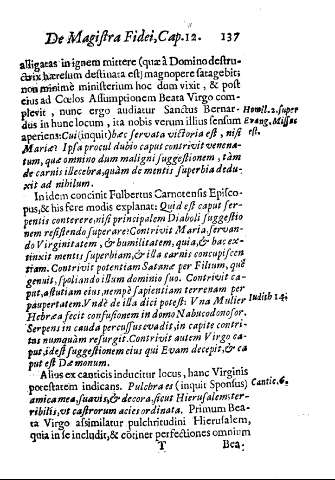 De Magistra Fidei, Cap. 12. 137
alligatas in ignem mittere (quæ à Domino destru-
ctrix hæresum destinata est) magnopere satagebit;
non minimè ministerium hoc dum vixit, & post
eius ad Cœlos Assumptionem Beata Virgo com-
plevit, nunc ergo audiatur Sanctus Bernar-
dus in hunc locum, ita nobis verum illius sensum
Homil. 2. super
Evang. Missus
est.
aperiens: Cui (inquit) hæc servata victoria est, nisi
Mariæ? Ipsa procul dubio caput contrivit venena-
tum, quæ omnino dum maligni suggestionem, tàm
de carnis illecebra, quàm de mentis superbia dedu-
xit ad nihilum.
In idem concinit Fulbertus Carnotensis Episco-
pus, & his ferè modis explanat: Quid est caput ser-
pentis conterere, nisi principalem Diaboli suggestio
nem resistendo superare? Contrivit Maria, servan-
do Virginitatem, & humilitatem, quia, & hac ex-
tinxit mentis superbiam, & illa carnis concupiscen
tiam. Contrivit potentiam Satanæ per Filium, què
genuit, spoliando illum dominio suo. Contrivit ca-
put, astutiam eius, nempè sapientiam terrenam per
paupertatem. Vndè de illa dici potest: Vna Mulier
Iudith 14.
Hebræa fecit confusionem in domo Nabucodonosor.
Serpens in cauda percussus evadit, in capite contri-
tus numquàm resurgit. Contrivit autem Virgo ca-
put, idest suggestionem eius qui Evam decepit, & ca
put est Dæmonum.
Alius ex canticis inducitur locus, hanc Virginis
potestatem indicans. Pulchra es (inquit Sponsus)
Cantic. 6.
amica mea, suavis, & decora, sicut Hierusalem: ter-
ribilis, vt castrorum acies ordinata. Primum Bea-
ta Virgo assimilatur pulchritudini Hierusalem,
quia in se includit, & cōtinet perfectiones omnium
T Bea-